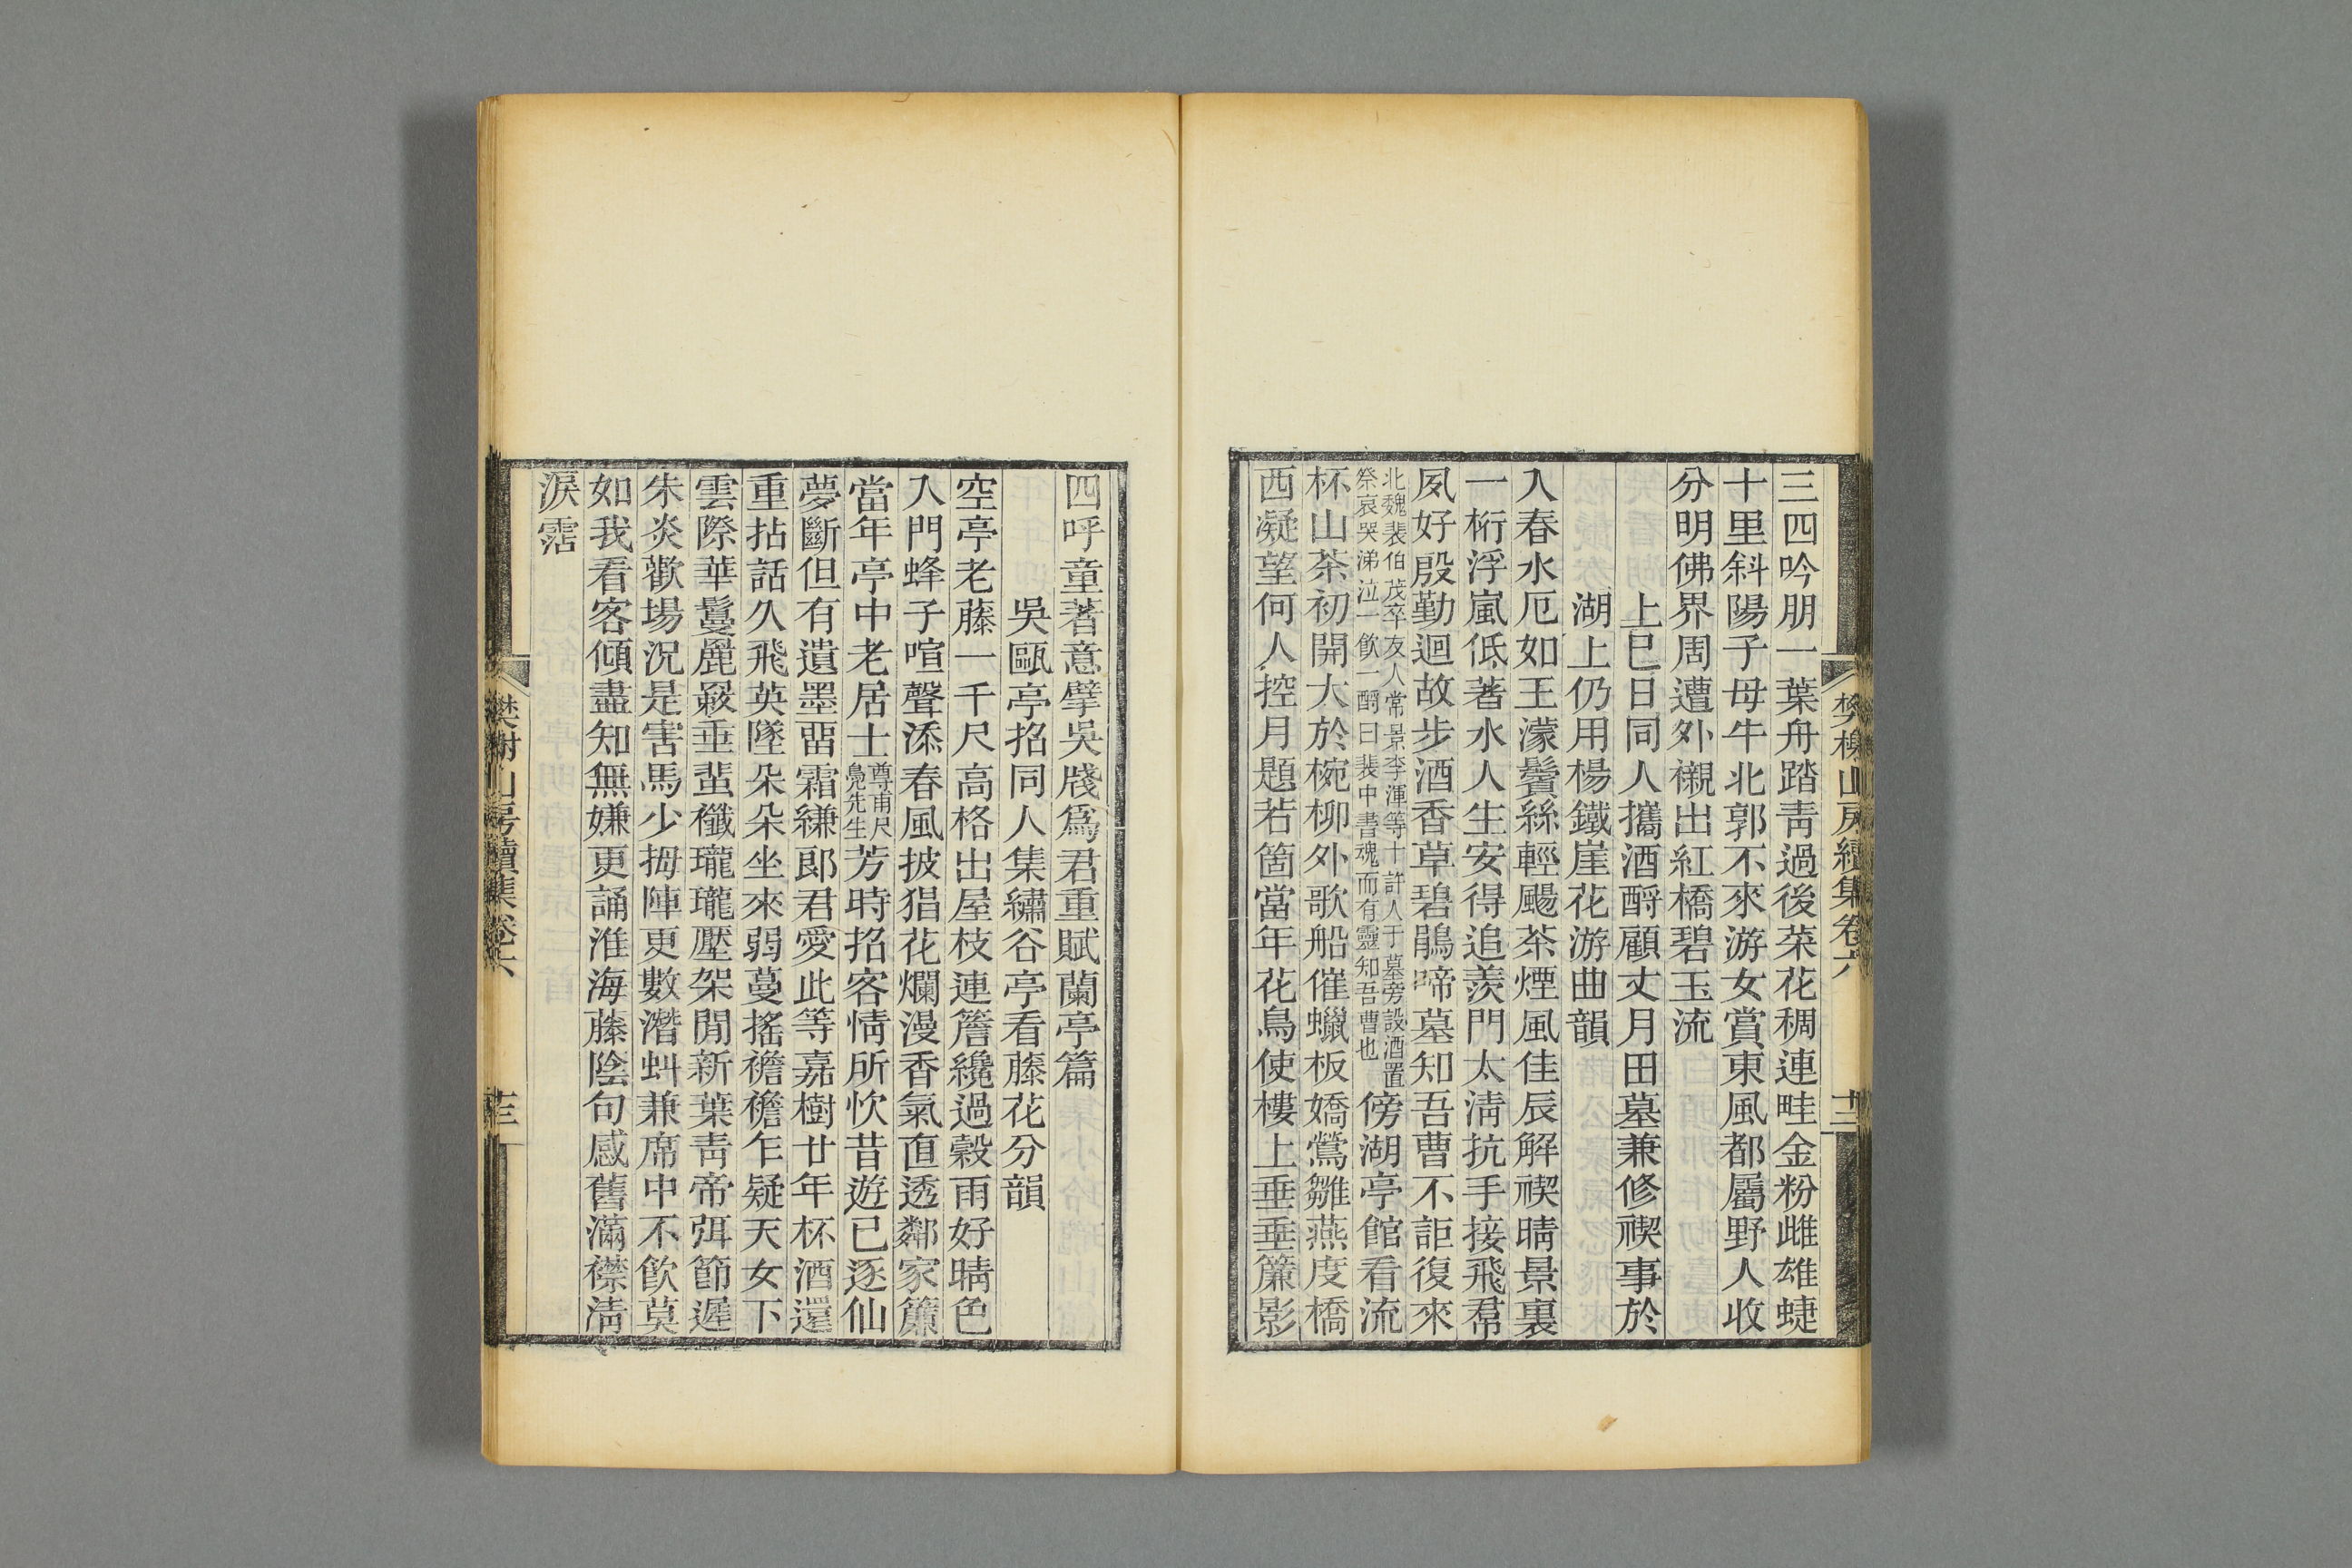 樊榭山房續集卷六
十二
三四吟朋一葉舟踏青過後菜花稠連畦金粉雌雄蜨
十里斜陽子母牛北郭不來游女賞東風都屬野人收
分明佛界周遭外襯出紅橋碧玉流
上巳日同人攜酒酹顧丈月田墓兼修禊事於
湖上仍用楊鐵崖花游曲韻
入春水厄如王濛鬢絲輕颺茶煙風佳辰解禊晴景裏
一桁浮嵐低著水人生安得追羨門太清抗手接飛帬
夙好殷勤迴故步酒香草碧鵑啼墓知吾曹不詎復來
北魏裴伯茂卒友人常景李渾等十許人于墓旁設酒置
祭哀哭涕泣一飲一酹曰裴中書魂而有靈知吾曹也
傍湖亭館看流
杯山茶初開大於椀柳外歌船催蠟板嬌鶯雛燕度橋
西凝望何人控月題若箇當年花鳥使樓上垂垂簾影
四呼童著意擘吳牋爲君重賦蘭亭篇
吳甌亭招同人集繡谷亭看藤花分韻
空亭老藤一千尺高格出屋枝連簷纔過穀雨好晴色
入門蜂子喧聲添春風披猖花爛漫香氣直透鄰家簾
當年亭中老居士
尊甫尺
鳧先生
芳時招客情所忺昔遊已逐仙
夢斷但有遺墨畱霜縑郎君愛此等嘉樹廿年杯酒還
重拈話久飛英墜朵朵坐來弱蔓搖襜襜乍疑天女下
雲際華鬘麗毲垂蜚襳瓏瓏壓架閒新葉靑帝弭節遲
朱炎歡場況是害馬少拇陣更數潛虯兼席中不飲莫
如我看客傾盡知無嫌更誦淮海藤陰句感舊滿襟淸
淚霑
樊榭山房續集卷六
十三